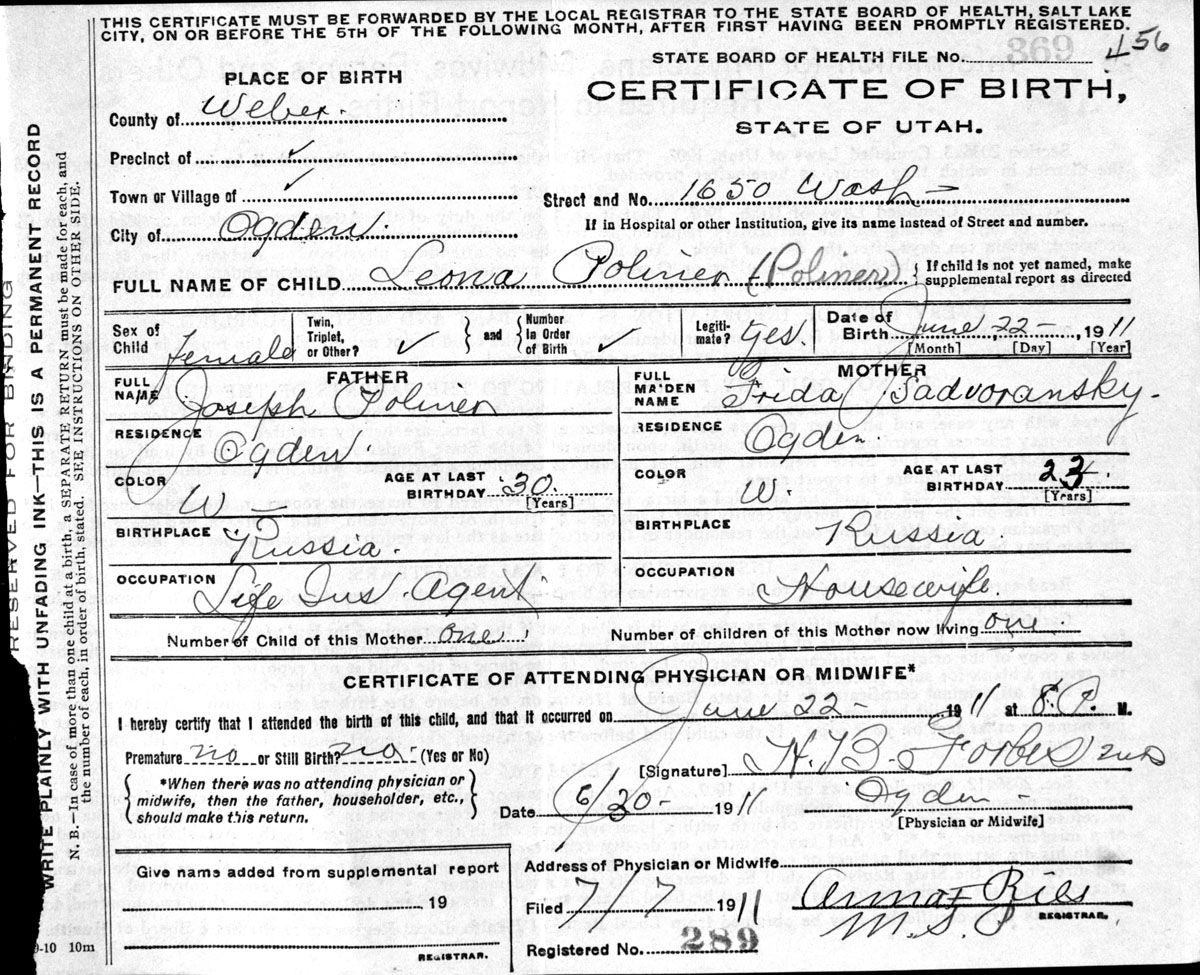 THIS CERTIFICATE MUST BE FORWARDED BY THE LOCAL REGISTRAR TO THE STATE BOARD OF HEALTH, SALT LAKE
CITY, ON OR BEFORE THE 5TH OF THE FOLLOWING MONTH, AFTER FIRST HAVING BEEN PROMPTLY REGISTERED.
STATE BOARD OF HEALTH FILE No. 869 456
PLACE OF BIRTH
CERTIFICATE OF BIRTH,
STATE OF UTAH.
County of Weber.
Precinct of ✓
Town or Village of ✓
Street and No. 1650 Wash
City of Ogden.
If in Hospital or other Institution, give its name instead of Street and number.
FULL NAME OF CHILD Leona Polmer (Poliner) { If child is not yet named, make supplemental report as directed
Sex of Child female
Twin, Triplet, or Other? ✓ } and { Number in Order of Birth ✓
Legiti-mate? yes
Date of Birth June 22 - 1911
[Month] [Day] [Year]
FATHER
FULL NAME Joseph Polmer
RESIDENCE Ogden.
COLOR W
AGE AT LAST BIRTHDAY 30 [Years]
BIRTHPLACE Russia.
OCCUPATION Life Ins. Agent.
MOTHER
FULL MAIDEN NAME Frida Sadvoransky.
RESIDENCE Ogden.
COLOR W.
AGE AT LAST BIRTHDAY 23 [Years]
BIRTHPLACE Russia.
OCCUPATION Housewife.
Number of Child of this Mother one.
Number of children of this Mother now living one
CERTIFICATE OF ATTENDING PHYSICIAN OR MIDWIFE*
I hereby certify that I attended the birth of this child, and that it occurred on June 22 - 1911 at M.
Premature no or Still Birth? no. (Yes or No)
[Signature] H. B. Forbes
{ *When there was no attending physician or
midwife, then the father, householder, etc.,
should make this return. }
Date 6/30 - 1911
Ogden
[Physician or Midwife]
Give name added from supplemental report
19
REGISTRAR.
Address of Physician or Midwife
Filed 7/7 1911
REGISTRAR.
Registered No. 289
RESERVED FOR BINDING
WRITE PLAINLY WITH UNFADING INK—THIS IS A PERMANENT RECORD
N. B.—In case of more than one child at a birth, a SEPARATE RETURN must be made for each, and
the number of each, in order of birth, stated. SEE INSTRUCTIONS ON OTHER SIDE.
10m